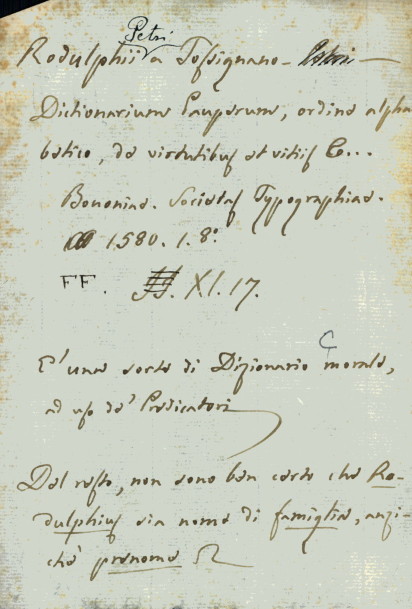 Petri
Rodulphii a Tossignano —
Dictionarium Pauperum, ordine alpha
betico, de virtutibus et vitiis &c...
Bononiae. Societas Typographiae.
1580. 1. 8.º
FF. XI. 17.
E' una sorte di Dizionario morale,
ad uso de' Predicatori
Del resto, non sono ben certo che Ro-
dulphius sia nome di famiglia, anzi-
chè prenome